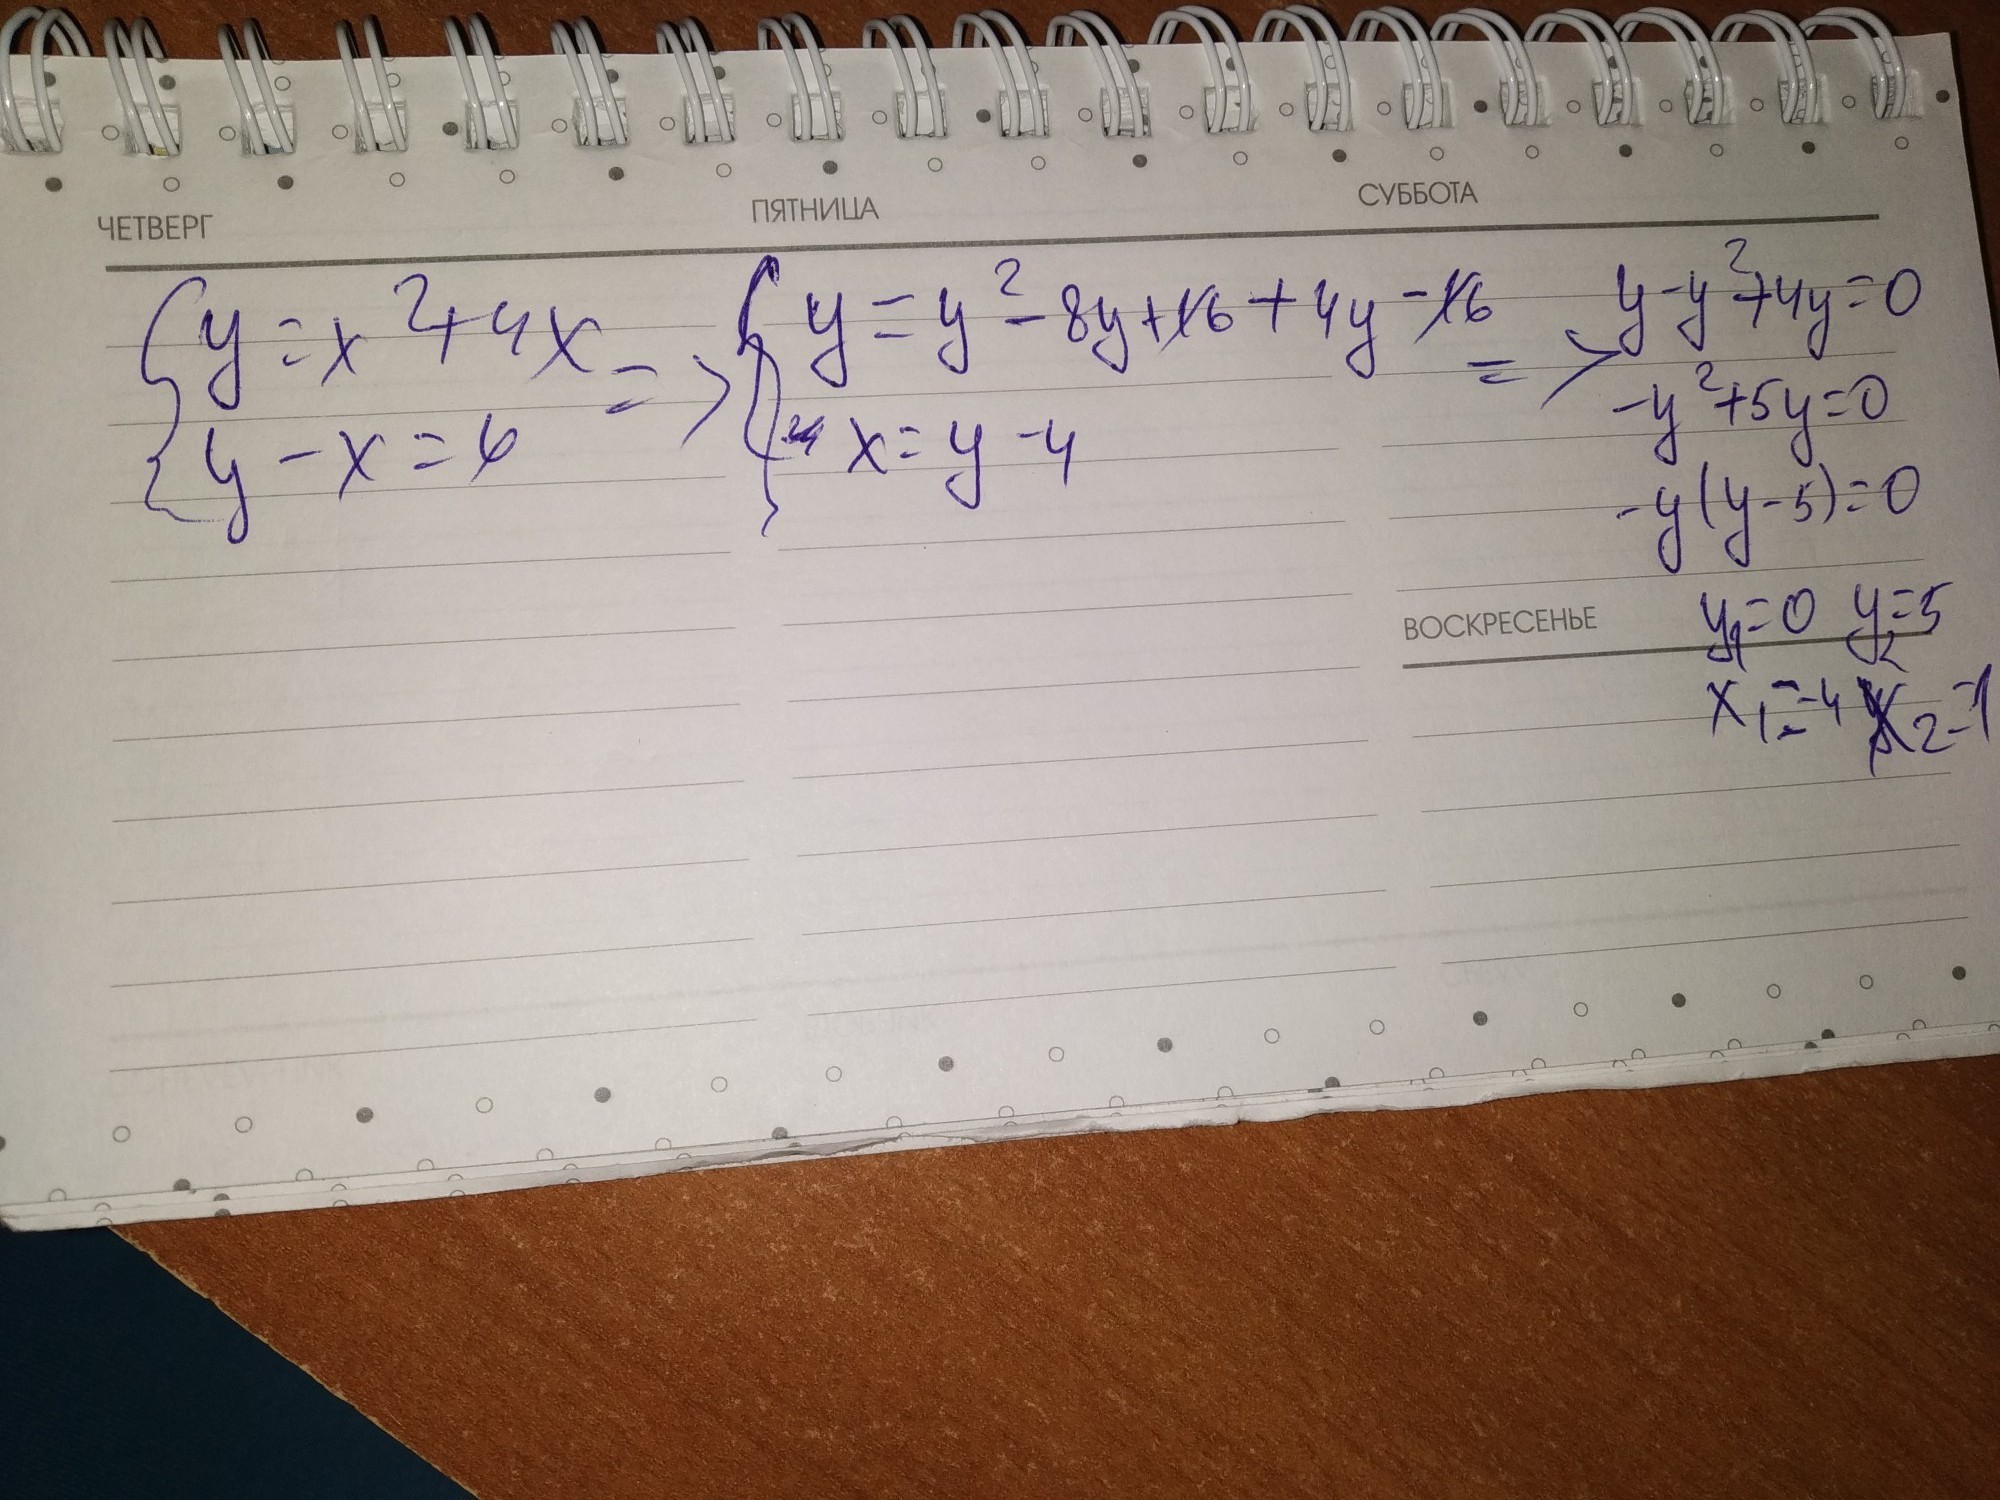 ЧЕТВЕРГ
ПЯТНИЦА
СУББОТА
{ y = x² + 4x
y - x = 4
=>
{ y = y² - 8y + 16 + 4y - 16
x = y - 4
=>
y - y² + 4y = 0
-y² + 5y = 0
-y(y - 5) = 0
ВОСКРЕСЕНЬЕ
y₁ = 0 y₂ = 5
x₁ = -4 x₂ = 1